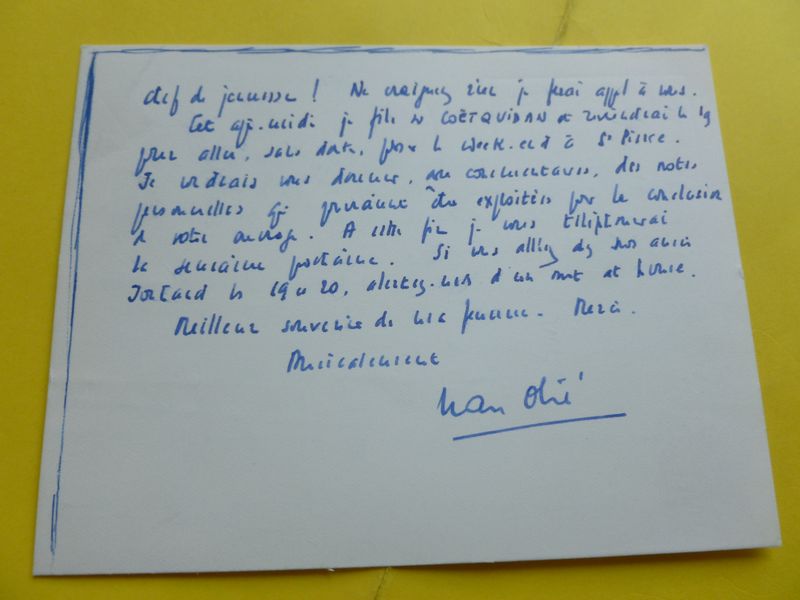 chef de jeunesse ! Ne craignez rien je ferai appel à vous.
Cet après-midi je file à COËTQUIDAN et reviendrai le 19
pour aller, sans doute, passer le week-end à St Pierre.
Je voudrais vous donner, commentaires, des notes
personnelles qui pourraient être exploitées pour la conclusion
de votre ouvrage. A cette fin je vous téléphonerai
la semaine prochaine. Si vous allez nos amis
le 19 ou 20, alertez-moi d'un mot at home.
Meilleur souvenir de ma femme. Merci.
Amicalement
Jean Olié